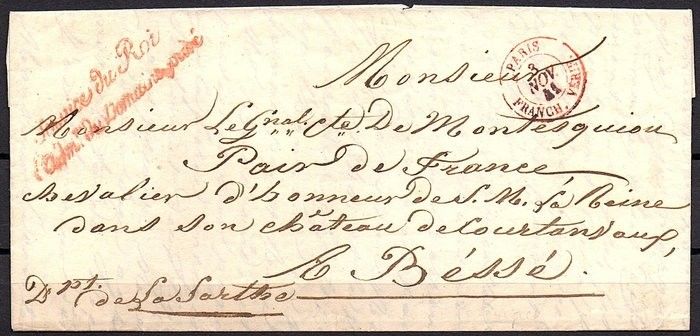 Service du Roi
l'adm. du Domaine privé
PARIS
3
NOV.
41
FRANCH.
Monsieur
Monsieur Le Gnal. Cte. De Montesquiou
Pair de France,
chevalier d'honneur de S. M. La Reine
dans son château de Courtanvaux,
A Béssé.
Dpt. de La Sarthe